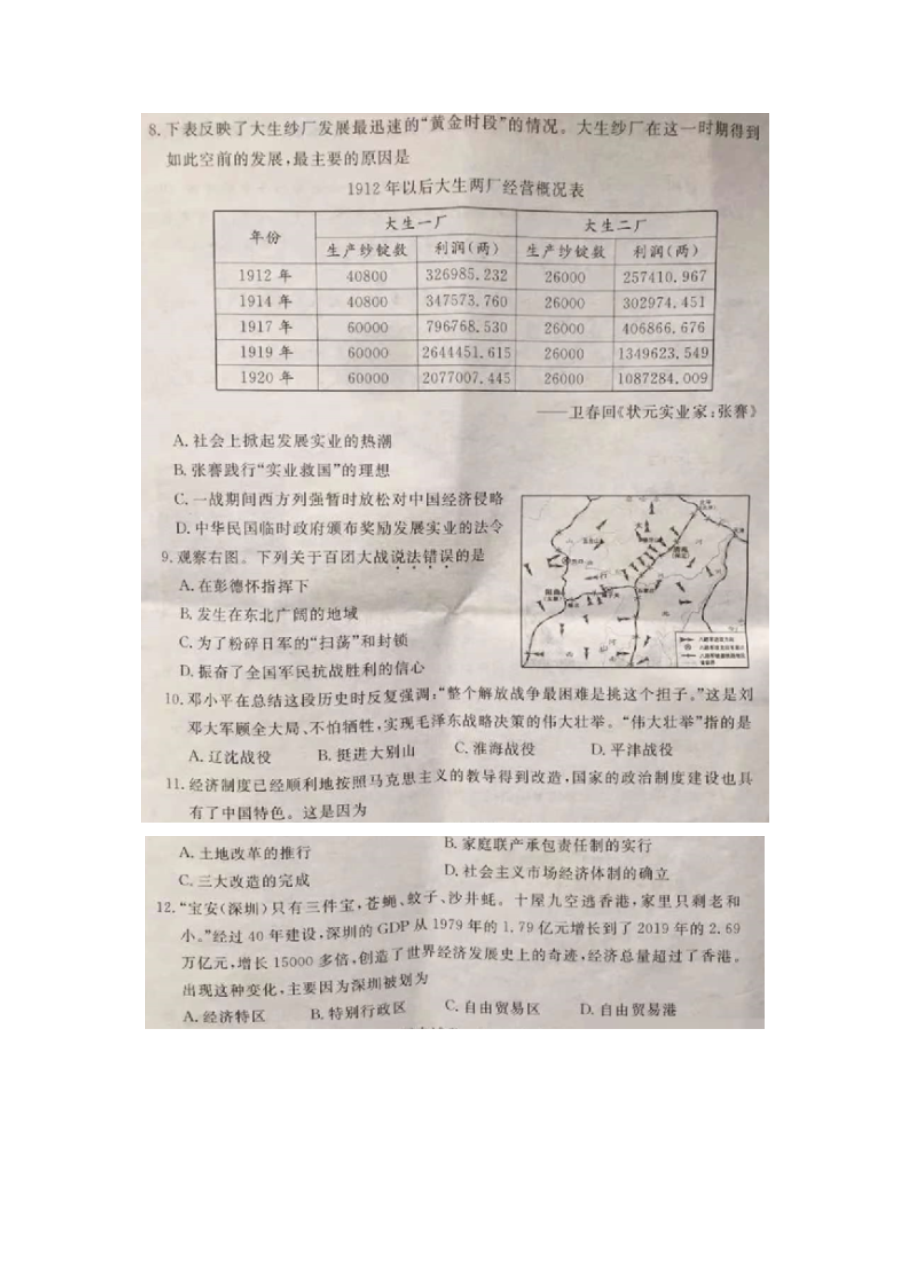 8.下表反映了大生纱厂发展最迅速的“黄金时段”的情况。大生纱厂在这一时期得到
如此空前的发展,最主要的原因是
1912年以后大生两厂经营概况表
年份 大生一厂 大生二厂
生产纱锭数 利润(两) 生产纱锭数 利润(两)
1912年 40800 326985.232 26000 257410.967
1914年 40800 347573.760 26000 302974.451
1917年 60000 796768.530 26000 406866.676
1919年 60000 2644451.615 26000 1349623.549
1920年 60000 2077007.445 26000 1087284.009
——卫春回《状元实业家:张謇》
A.社会上掀起发展实业的热潮
B.张謇践行“实业救国”的理想
C.一战期间西方列强暂时放松对中国经济侵略
D.中华民国临时政府颁布奖励发展实业的法令
9.观察右图。下列关于百团大战说法错误的是
A.在彭德怀指挥下
B.发生在东北广阔的地域
C.为了粉碎日军的“扫荡”和封锁
D.振奋了全国军民抗战胜利的信心
10.邓小平在总结这段历史时反复强调:“整个解放战争最困难是挑这个担子。”这是刘
邓大军顾全大局、不怕牺牲,实现毛泽东战略决策的伟大壮举。“伟大壮举”指的是
A.辽沈战役 B.挺进大别山 C.淮海战役 D.平津战役
11.经济制度已经顺利地按照马克思主义的教导得到改造,国家的政治制度建设也具
有了中国特色。这是因为
A.土地改革的推行 B.家庭联产承包责任制的实行
C.三大改造的完成 D.社会主义市场经济体制的确立
12.“宝安(深圳)只有三件宝,苍蝇、蚊子、沙井蚝。十屋九空逃香港,家里只剩老和
小。”经过40年建设,深圳的GDP从1979年的1.79亿元增长到了2019年的2.69
万亿元,增长15000多倍,创造了世界经济发展史上的奇迹,经济总量超过了香港。
出现这种变化,主要因为深圳被划为
A.经济特区 B.特别行政区 C.自由贸易区 D.自由贸易港